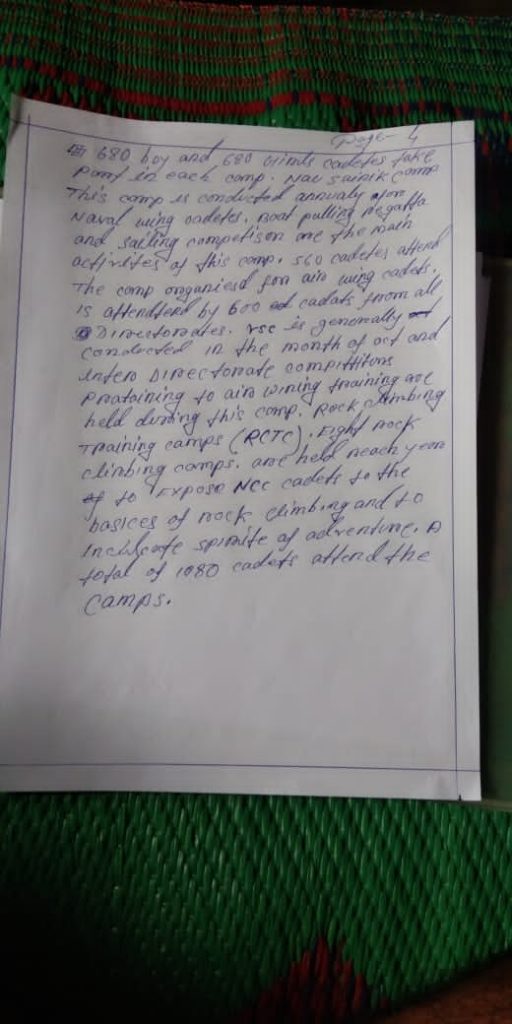 Page - 4
680 boy and 680 girls cadetes take
part in each camp. Nau sainik camp
This camp is conducted annualy for
Naval wing cadetes. Boat pulling Regatta
and sailing competision are the main
activites of this camp. 560 cadetes attend
The camp organiesd for air wing cadets.
is attendterd by 600 cadats from all
Directorates. VSC is generally
conducted in the month of oct and
intero Directonate compittitons
prataining to air wining training are
held during this camp. Rock climbing
Training camps (RCTC). Eight rock
climbing camps. are held neach year
to Expose NCC cadets to the
basices of rock climbing and to
inclulcate spirite of adventure. A
total of 1080 cadets attend the
camps.